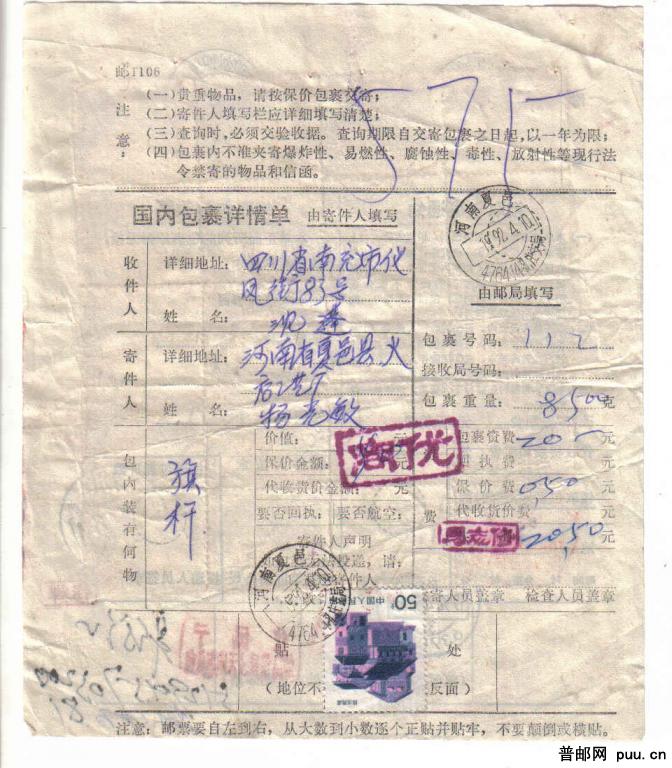 邮1106
注意：
(一)贵重物品，请按保价包裹交寄；
(二)寄件人填写栏应详细填写清楚；
(三)查询时，必须交验收据。查询期限自交寄包裹之日起，以一年为限；
(四)包裹内不准夹寄爆炸性、易燃性、腐蚀性、毒性、放射性等现行法
令禁寄的物品和信函。
575
国内包裹详情单 由寄件人填写
河南夏邑
1992.4.10
由邮局填写
收件人
详细地址：四川省南充市化
凤街83号
姓 名：
寄件人
详细地址：河南省夏邑县火
姓 名：杨光敏
包裹号码：112
接收局号码：
包裹重量：8500克
包内装有何物
旗杆
价值： 元
保价金额： 元
代收货价金额： 元
要否回执： 要否航空：
寄件人声明
无法投递，请：
包裹资费 20
回执费
保价费 0.50
代收货价费
费 20.50元
检查人员盖章
河南夏邑
4764
50分
中国人民
贴 处
(地位不 反面)
注意：邮票要自左到右，从大数到小数逐个正贴并贴牢，不要颠倒或横贴。
普邮网 puu.cn